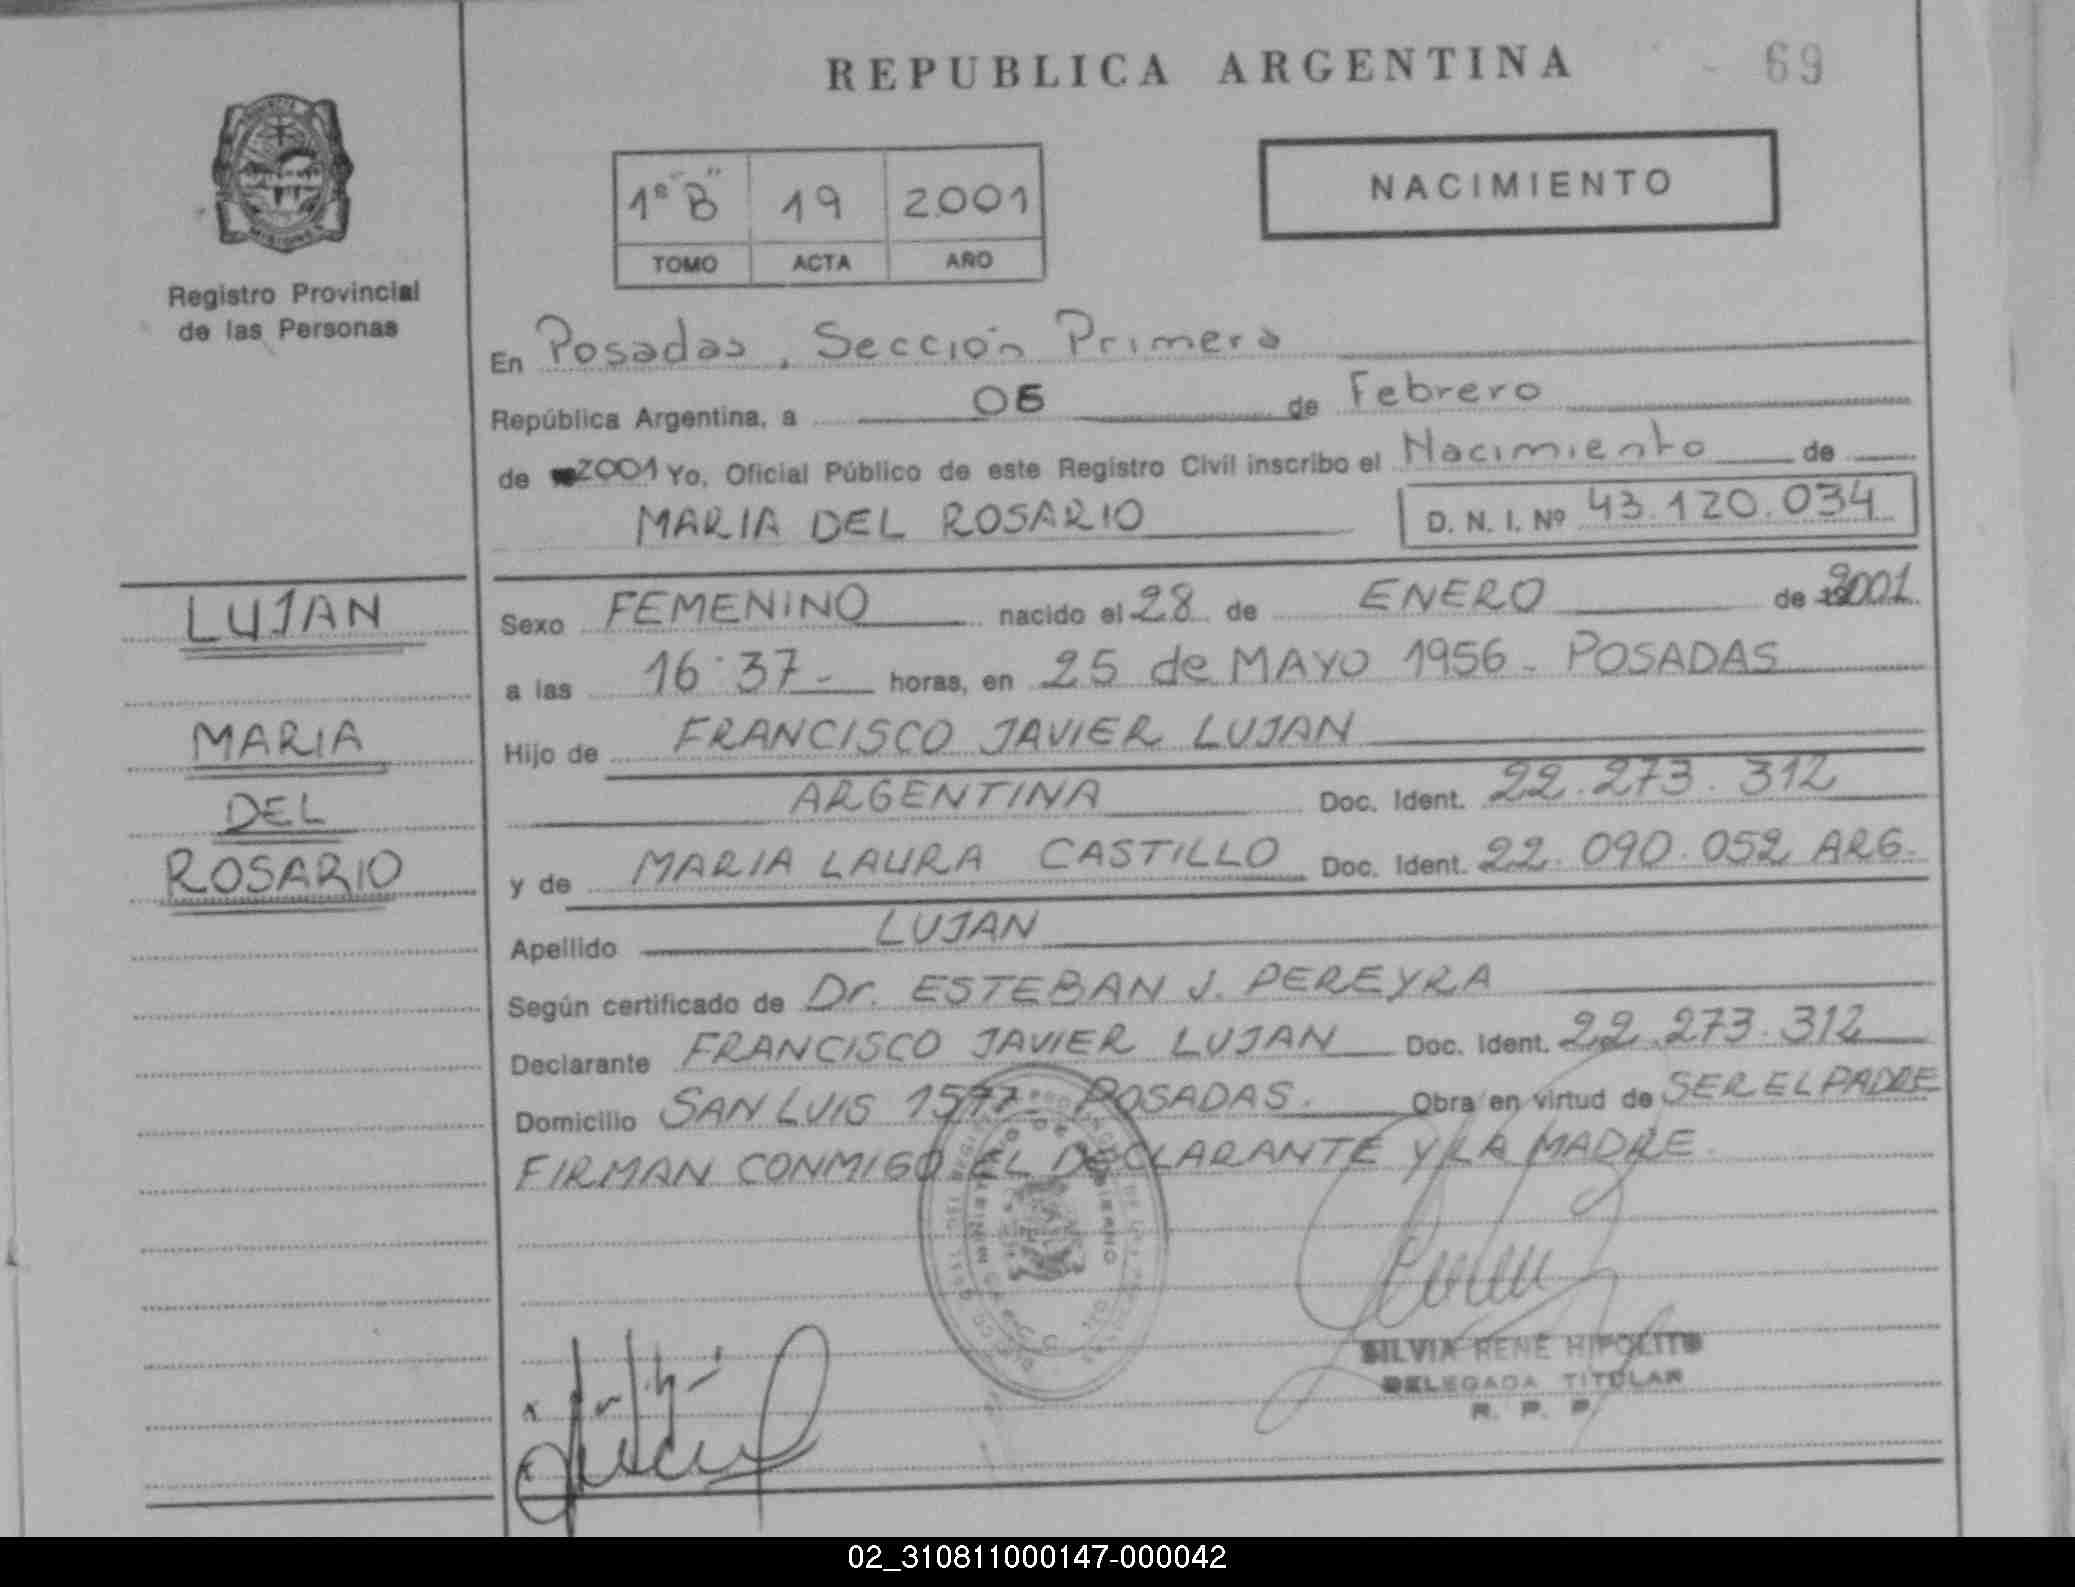 REPUBLICA ARGENTINA 69
1º "B" 19 2001
TOMO ACTA AÑO
NACIMIENTO
MISIONES
Registro Provincial
de las Personas
En Posadas, Sección Primera
República Argentina, a 06 de Febrero
de 2001 Yo, Oficial Público de este Registro Civil inscribo el Nacimiento de
MARIA DEL ROSARIO D. N. I. Nº 43.120.034
LUJAN
MARIA
DEL
ROSARIO
Sexo FEMENINO nacido el 28 de ENERO de 2001
a las 16:37- horas, en 25 de MAYO 1956 - POSADAS
Hijo de FRANCISCO JAVIER LUJAN
ARGENTINA Doc. Ident. 22.273.312
y de MARIA LAURA CASTILLO Doc. Ident. 22.090.052 ARG.
Apellido LUJAN
Según certificado de Dr. ESTEBAN J. PEREYRA
Declarante FRANCISCO JAVIER LUJAN Doc. Ident. 22.273.312
Domicilio SAN LUIS 1597 - POSADAS. Obra en virtud de SER EL PADRE
FIRMAN CONMIGO EL DECLARANTE Y LA MADRE.
SILVIA RENE HIPOLITO
DELEGADA TITULAR
R. P. P.
02_310811000147-000042